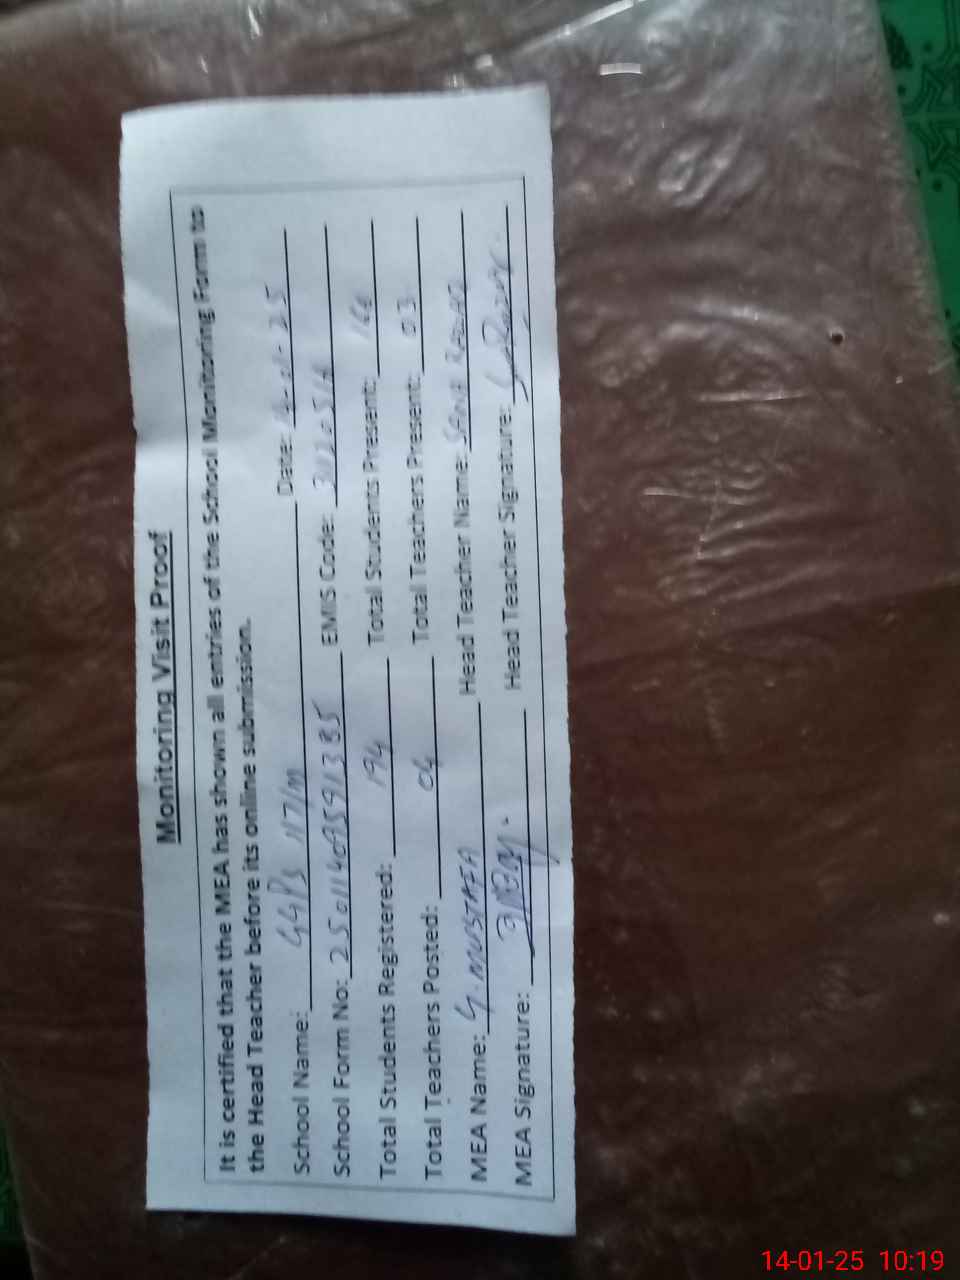 Monitoring Visit Proof
It is certified that the MEA has shown all entries of the School Monitoring Form to
the Head Teacher before its online submission.
School Name: GGPS 117/M Date: 14-01-25
School Form No: 25011409591385 EMIS Code:
Total Students Registered: 194 Total Students Present:
Total Teachers Posted: 04 Total Teachers Present: 03
MEA Name: G. MUSTAFA Head Teacher Name: SANA
MEA Signature: Head Teacher Signature:
14-01-25 10:19